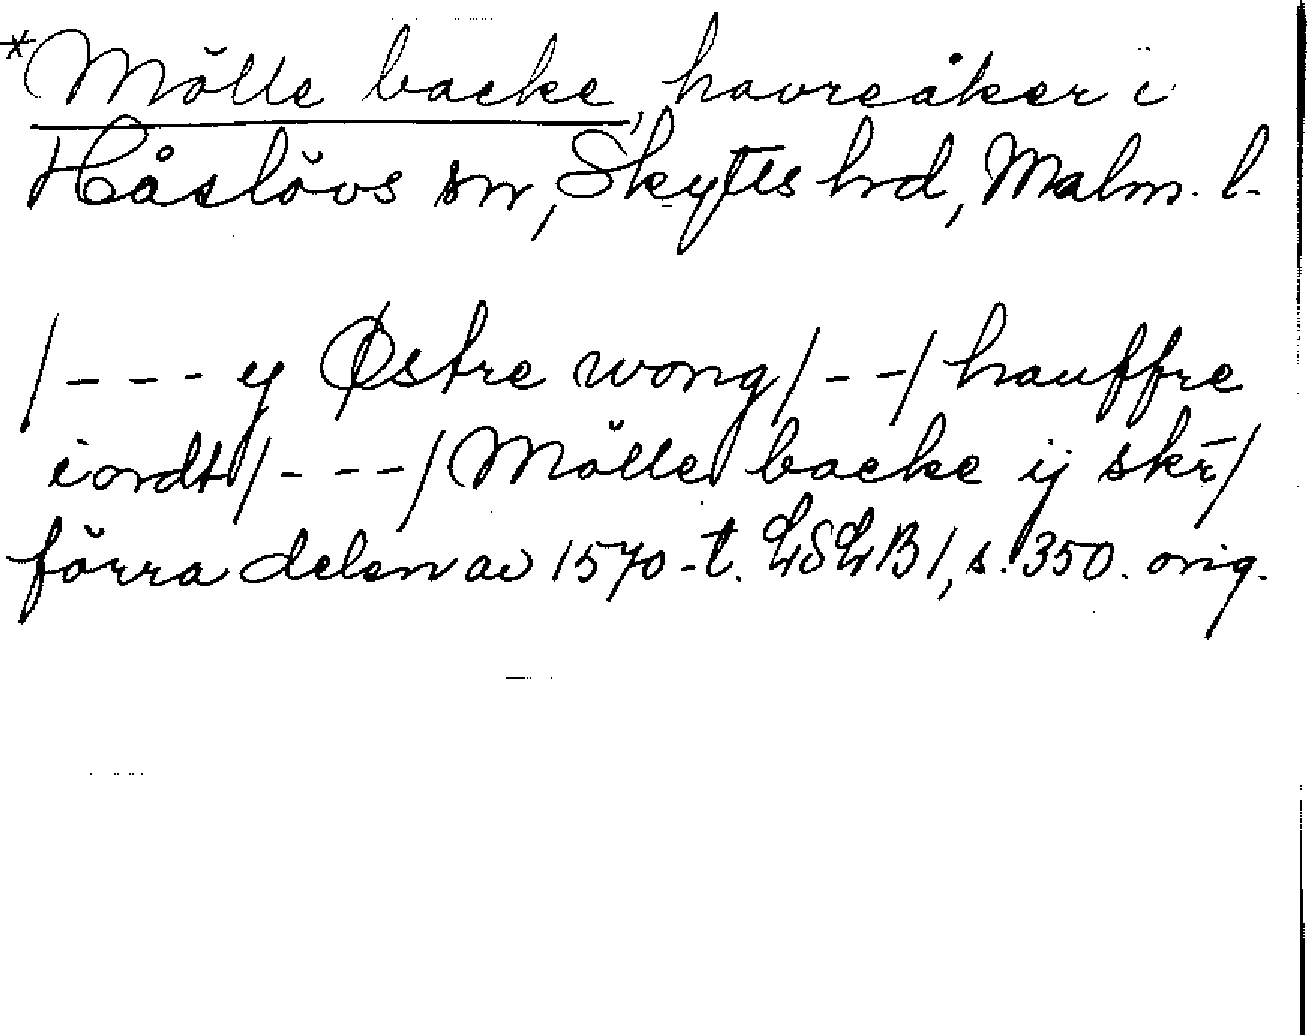 *Mölle backe, havreåker i
Håslövs sn, Skytts hd, Malm. l.
/--- y Østre wong/--/ hauffre
iordt/---/ Mölle backe ij skr̄/
förra delen av 1570-t. LSLB 1, s. 350. orig.